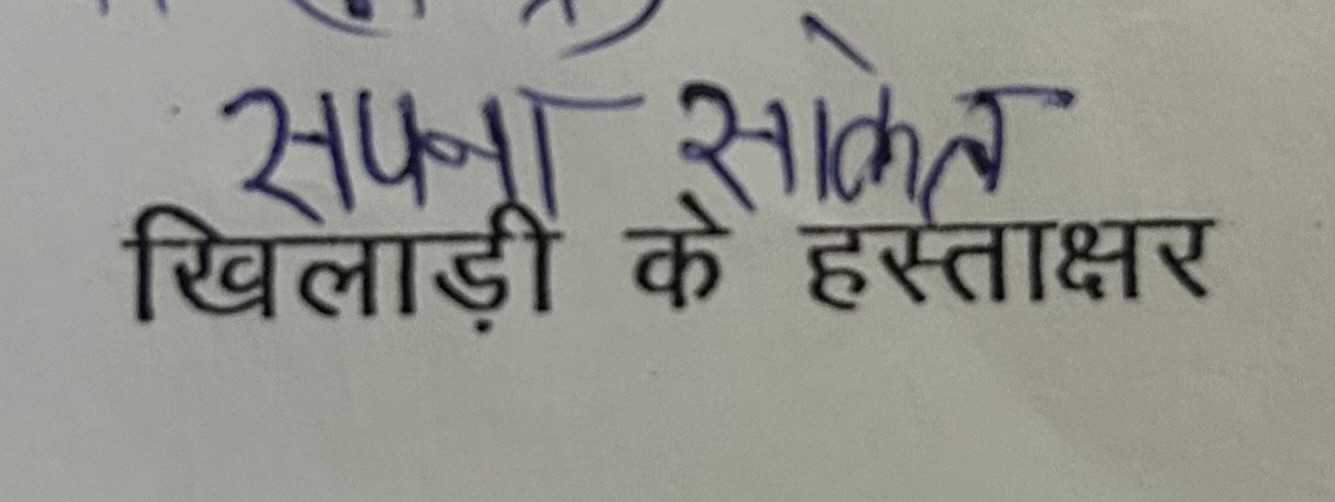 सपना साकेत
खिलाड़ी के हस्ताक्षर